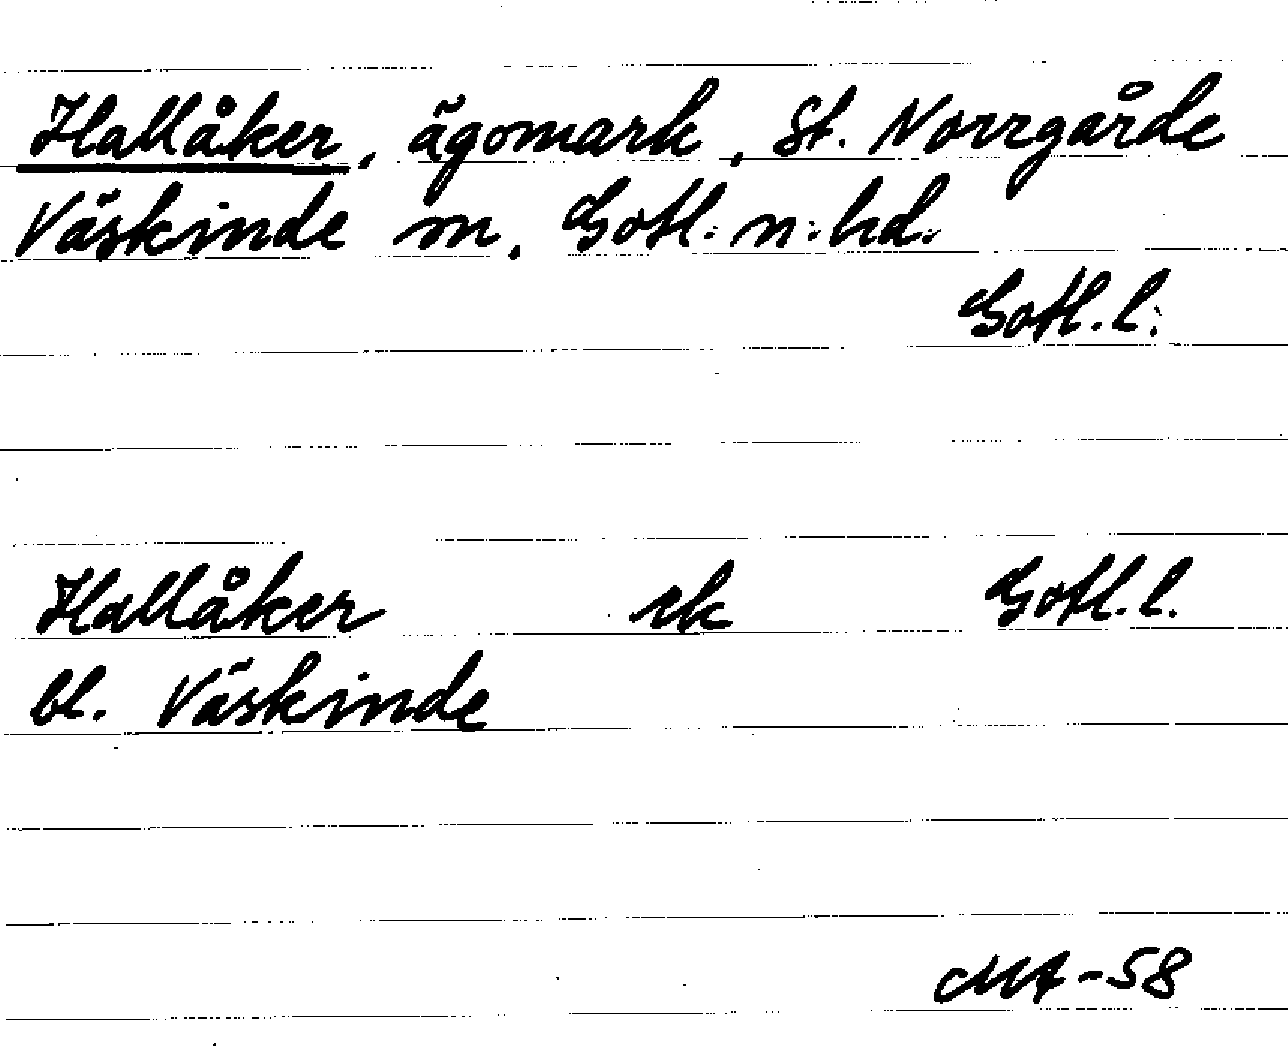 Hallåker, ägomark, St. Norrgårde
Väskinde sn, Gotl. n. hd.
Gotl. l.
Hallåker ek Gotl. l.
bl. Väskinde
MA-58